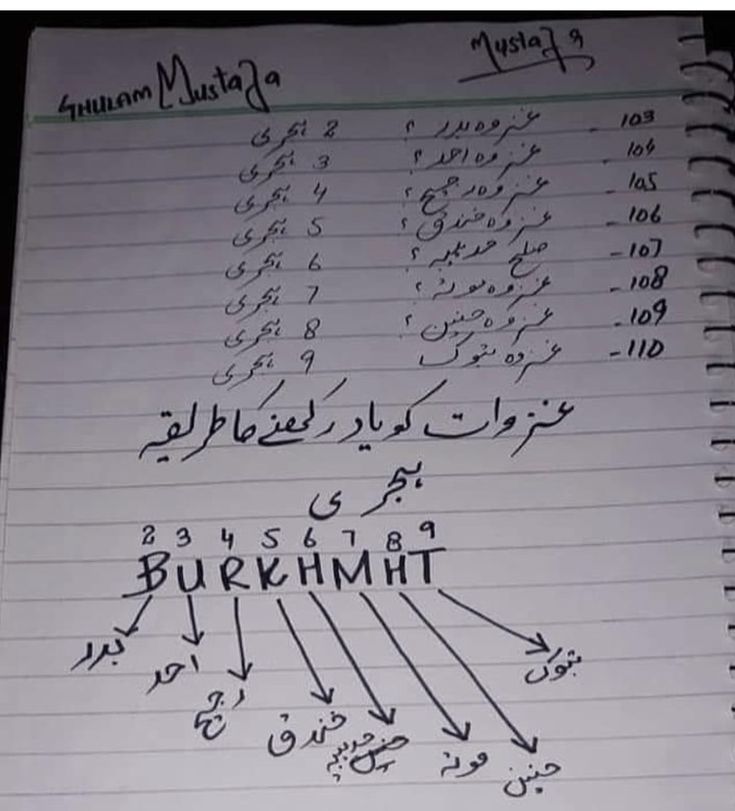 GHULAM Mustafa
Mustafa
103 - غزوہ بدر ؟ 2 ہجری
104 - غزوہ احد ؟ 3 ہجری
105 - غزوہ رجیع ؟ 4 ہجری
106 - غزوہ خندق ؟ 5 ہجری
107 - صلح حدیبیہ ؟ 6 ہجری
108 - غزوہ موتہ ؟ 7 ہجری
109 - غزوہ حنین ؟ 8 ہجری
110 - غزوہ تبوک 9 ہجری
غزوات کو یاد رکھنے کا طریقہ
ہجری
2 3 4 5 6 7 8 9
BURKHMHT
بدر احد رجیع خندق حدیبیہ موتہ حنین تبوک